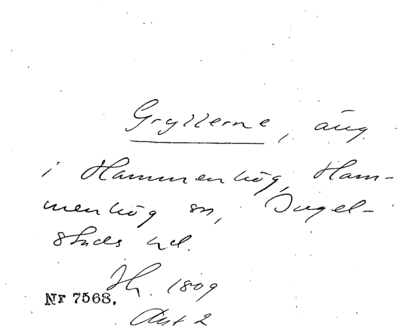 Gryllerne, äng
i Hammenhög, Ham-
menhög sn, Ingel-
stads hd.
1809
Nr 7568.
Akt 2